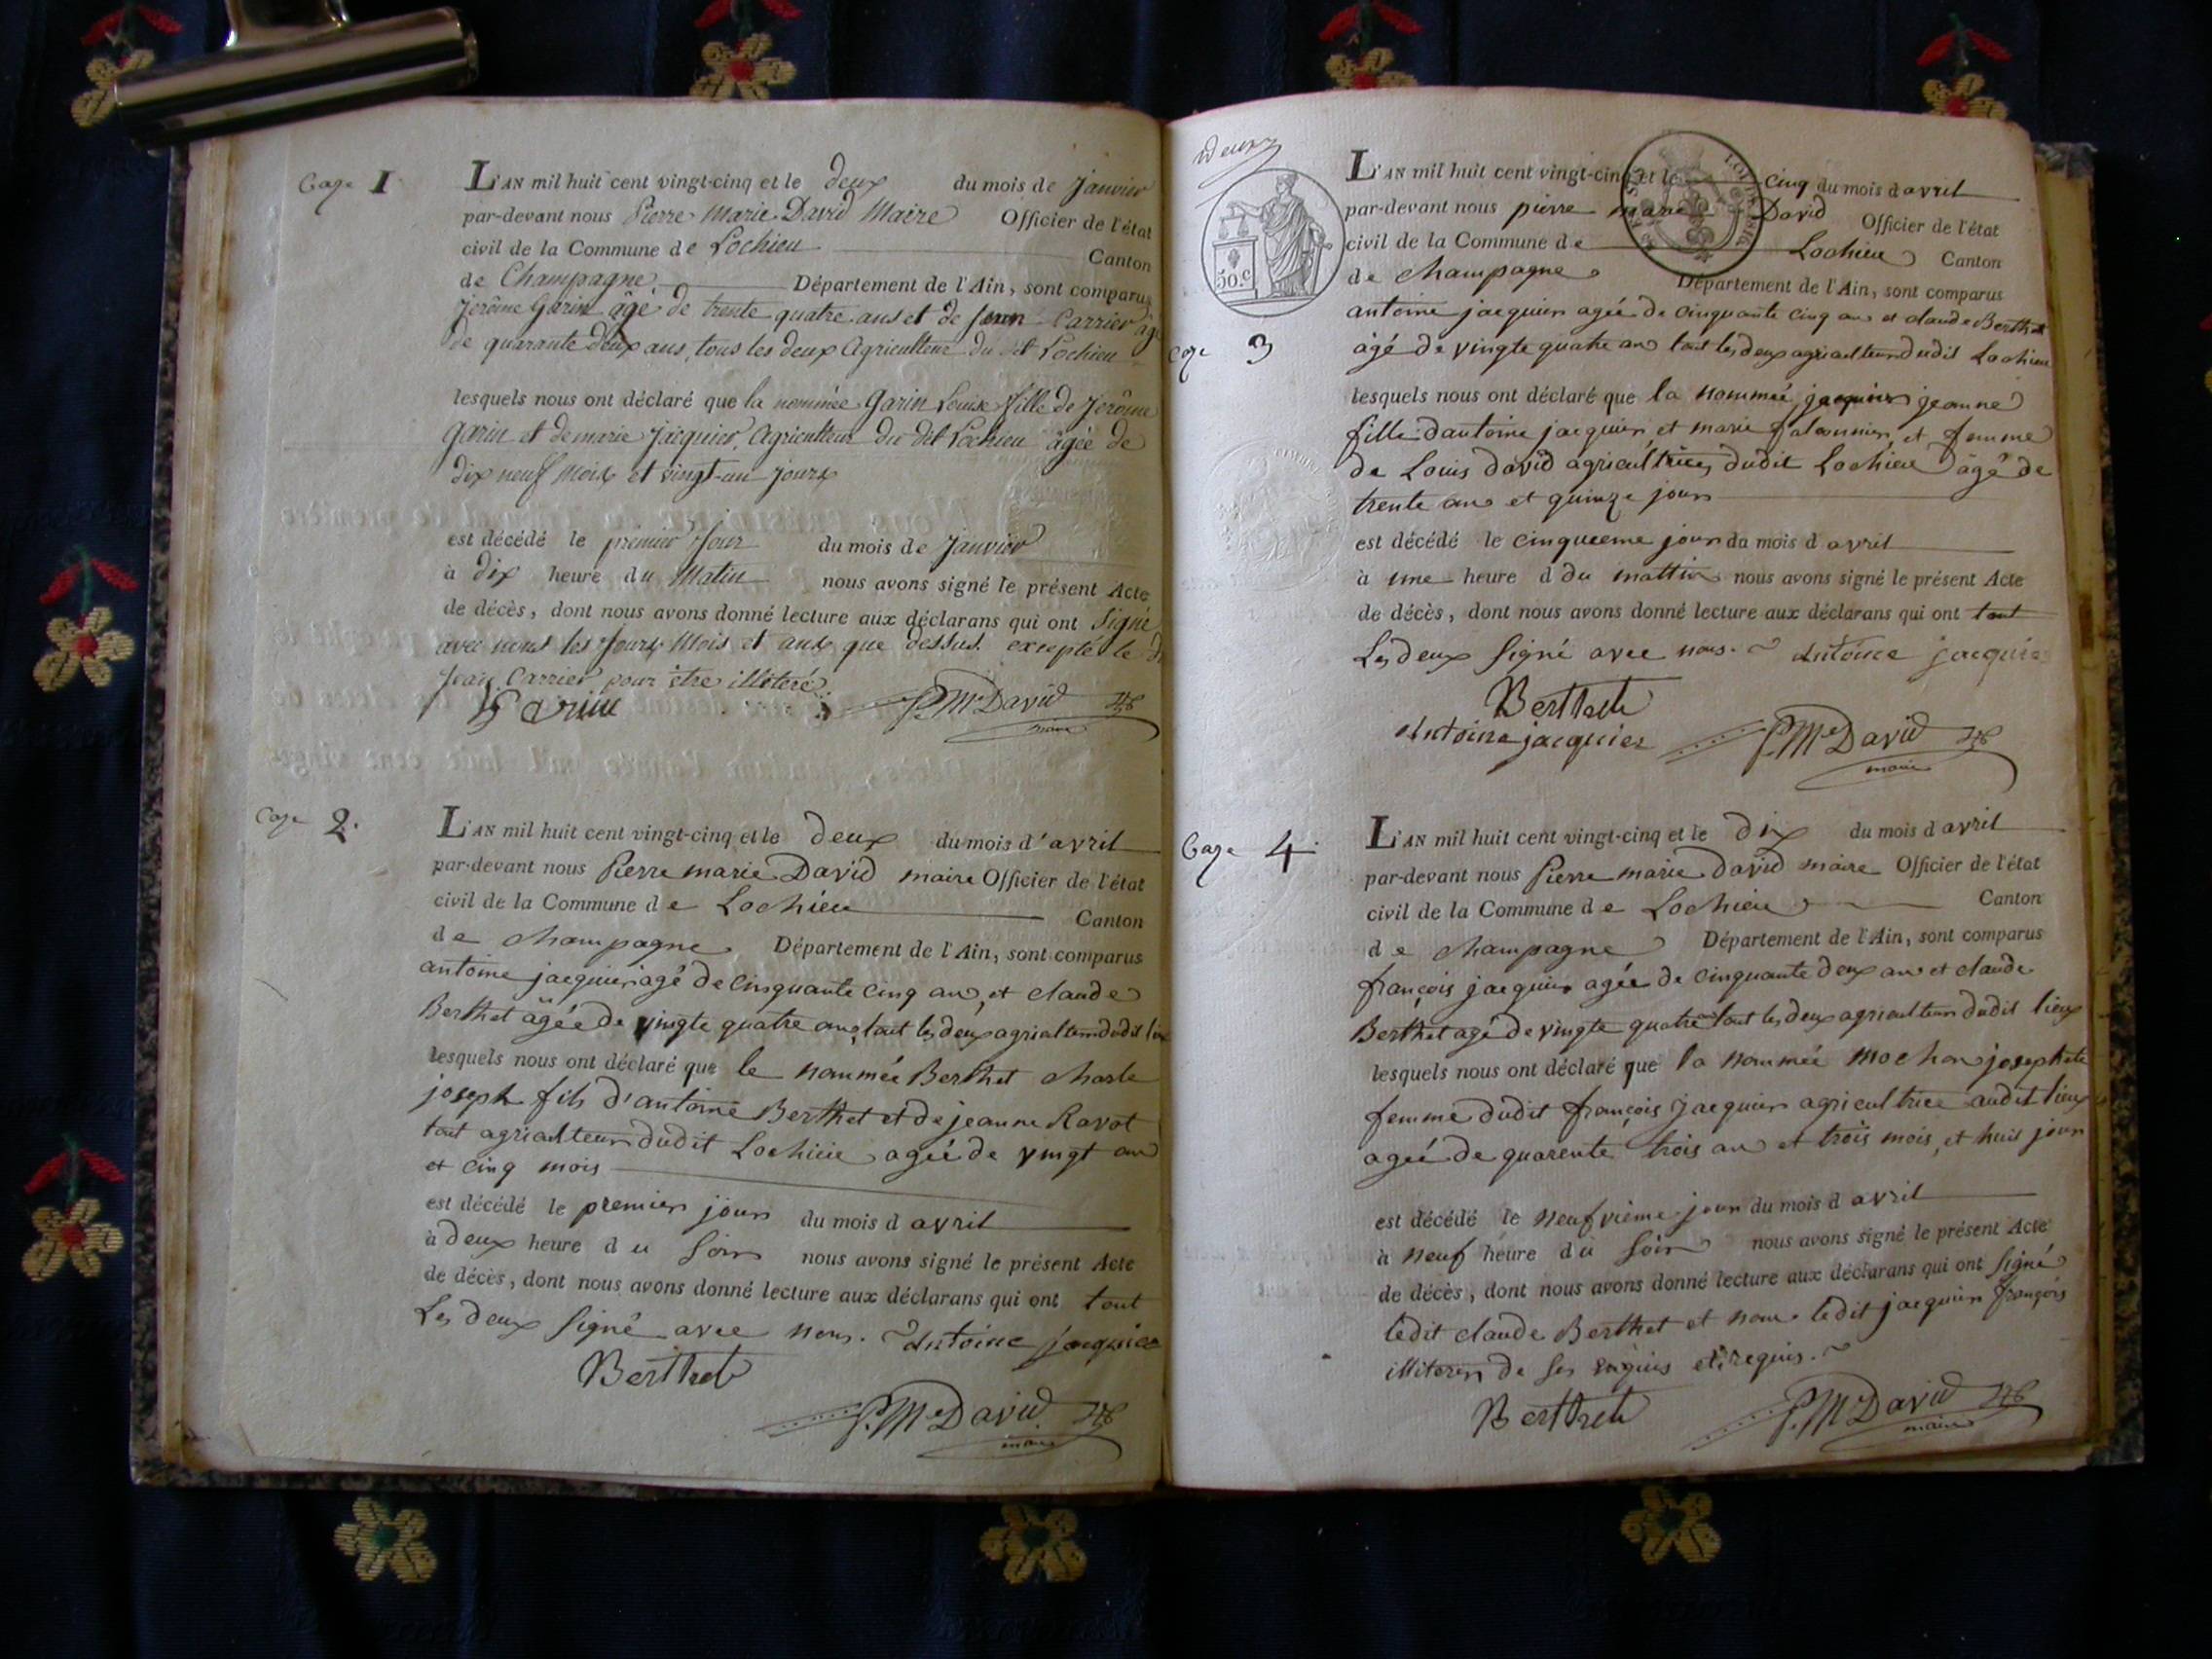 Cage 1
L'AN mil huit cent vingt-cinq et le deux du mois de Janvier
par-devant nous Pierre Marie David Maire Officier de l'état
civil de la Commune de Lochieu Canton
de Champagne Département de l'Ain, sont comparus
Jerôme Garin âge de trente quatre ans et de Jean Carrier âge
de quarante deux ans, tous les deux Agriculteur du dit Lochieu
lesquels nous ont déclaré que la nommée Garin Louise fille de Jerôme
Garin et de marie Jacquier, Agriculteur du dit Lochieu âgée de
dix neuf mois et vingt-un jours
est décédé le premier Jour du mois de Janvier
à dix heure du Matin nous avons signé le présent Acte
de décès, dont nous avons donné lecture aux déclarans qui ont Signé
avec nous les Jours Mois et ans que dessus. excepté le
Jean Carrier pour être illiteré.
Garin P.Me David
maire
Cage 2.
L'AN mil huit cent vingt-cinq et le deux du mois d'avril
par-devant nous Pierre marie David maire Officier de l'état
civil de la Commune de Lochieu Canton
de champagne Département de l'Ain, sont comparus
antoine jacquier agé de Cinquante cinq ans et claude
Berthet âgée de vingte quatre ans, tout les deux agrialteur dudit lieux
lesquels nous ont déclaré que le nommée Berthet charle
joseph fils d'antoine Berthet et de jeanne Ravot
tout agrialteur dudit Lochieu agée de vingt ans
et cinq mois
est décédé le premier jour du mois d avril
à deux heure du Soir nous avons signé le présent Acte
de décès, dont nous avons donné lecture aux déclarans qui ont tout
Les deux Signé avec nous. Antoine jacquier
Berthet
P.Me David
maire
deux
50.c
L'AN mil huit cent vingt-cinq et le cinq du mois d avril
par-devant nous pierre marie David Officier de l'état
civil de la Commune de Lochieu Canton
de champagne Département de l'Ain, sont comparus
antoine jacquier agée de cinquante cinq ans et claude Berthet
Cage 3
âgé de vingte quatre ans tout les deux agriaulteur dudit Lochieu
lesquels nous ont déclaré que la nommée jacquier jeanne
fille dantoine jacquier et marie et femme
de Louis david agricultrice dudit Lochieu âgé de
trente ans et quinze jours
est décédé le cinquieme jour du mois d avril
à une heure d du mattin nous avons signé le présent Acte
de décès, dont nous avons donné lecture aux déclarans qui ont tout
Les deux Signé avec nous. Antoine jacquie
Berthet
Antoine jacquier P.Me David
maire
Cage 4.
L'AN mil huit cent vingt-cinq et le dix du mois d avril
par-devant nous Pierre marie David maire Officier de l'état
civil de la Commune de Lochieu Canton
de champagne Département de l'Ain, sont comparus
françois jacquier agée de cinquante deux ans et claude
Berthet agé de vingte quatre ans tout les deux agriaulteur dudit lieux
lesquels nous ont déclaré que la nommée mochon josephete
femme dudit françois jacquier agricultrice audit lieux
agée de quarente trois ans et trois mois, et huit jour
est décédé le neufvième jour du mois d avril
à neuf heure du Soir nous avons signé le présent Acte
de décès, dont nous avons donné lecture aux déclarans qui ont Signé
ledit claude Berthet et nous ledit jacquier françois
illiterer de ses et requis.
Berthet P.Me David
maire